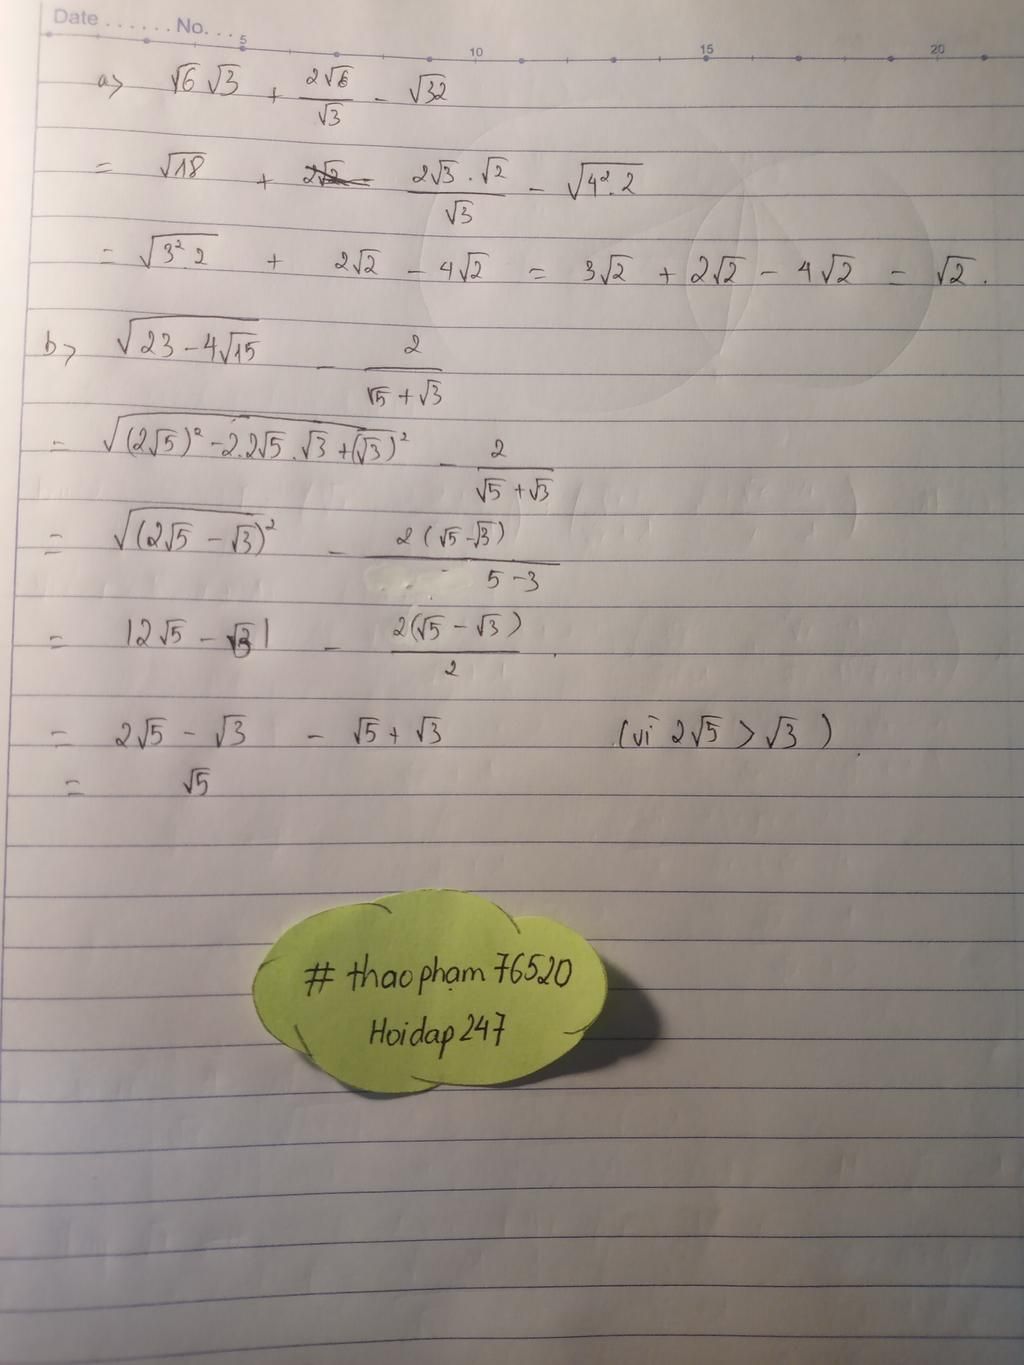 Date ...... No....
5 10 15 20
a> √6 √3 + 2√6/√3 - √32
= √18 + 2√3 . √2/√3 - √(4² . 2)
= √(3² . 2) + 2√2 - 4√2 = 3√2 + 2√2 - 4√2 = √2 .
b> √(23 - 4√15) - 2/(√5 + √3)
= √((2√5)² - 2.2√5 . √3 + (√3)²) - 2/(√5 + √3)
= √((2√5 - √3)²) - 2(√5 - √3)/(5 - 3)
= |2√5 - √3| - 2(√5 - √3)/2 .
= 2√5 - √3 - √5 + √3 (vì 2√5 > √3)
= √5
# thaophạm76520
Hoidap247